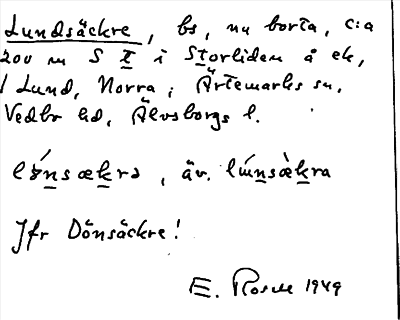 Lundsäckre, bs, nu borta, c:a
200 m S t i Storliden å ek,
1 Lund, Norra, Ärtemarks sn,
Vedbo hd, Älvsborgs l.
, äv.
Jfr Dönsäckre!
E. 1949